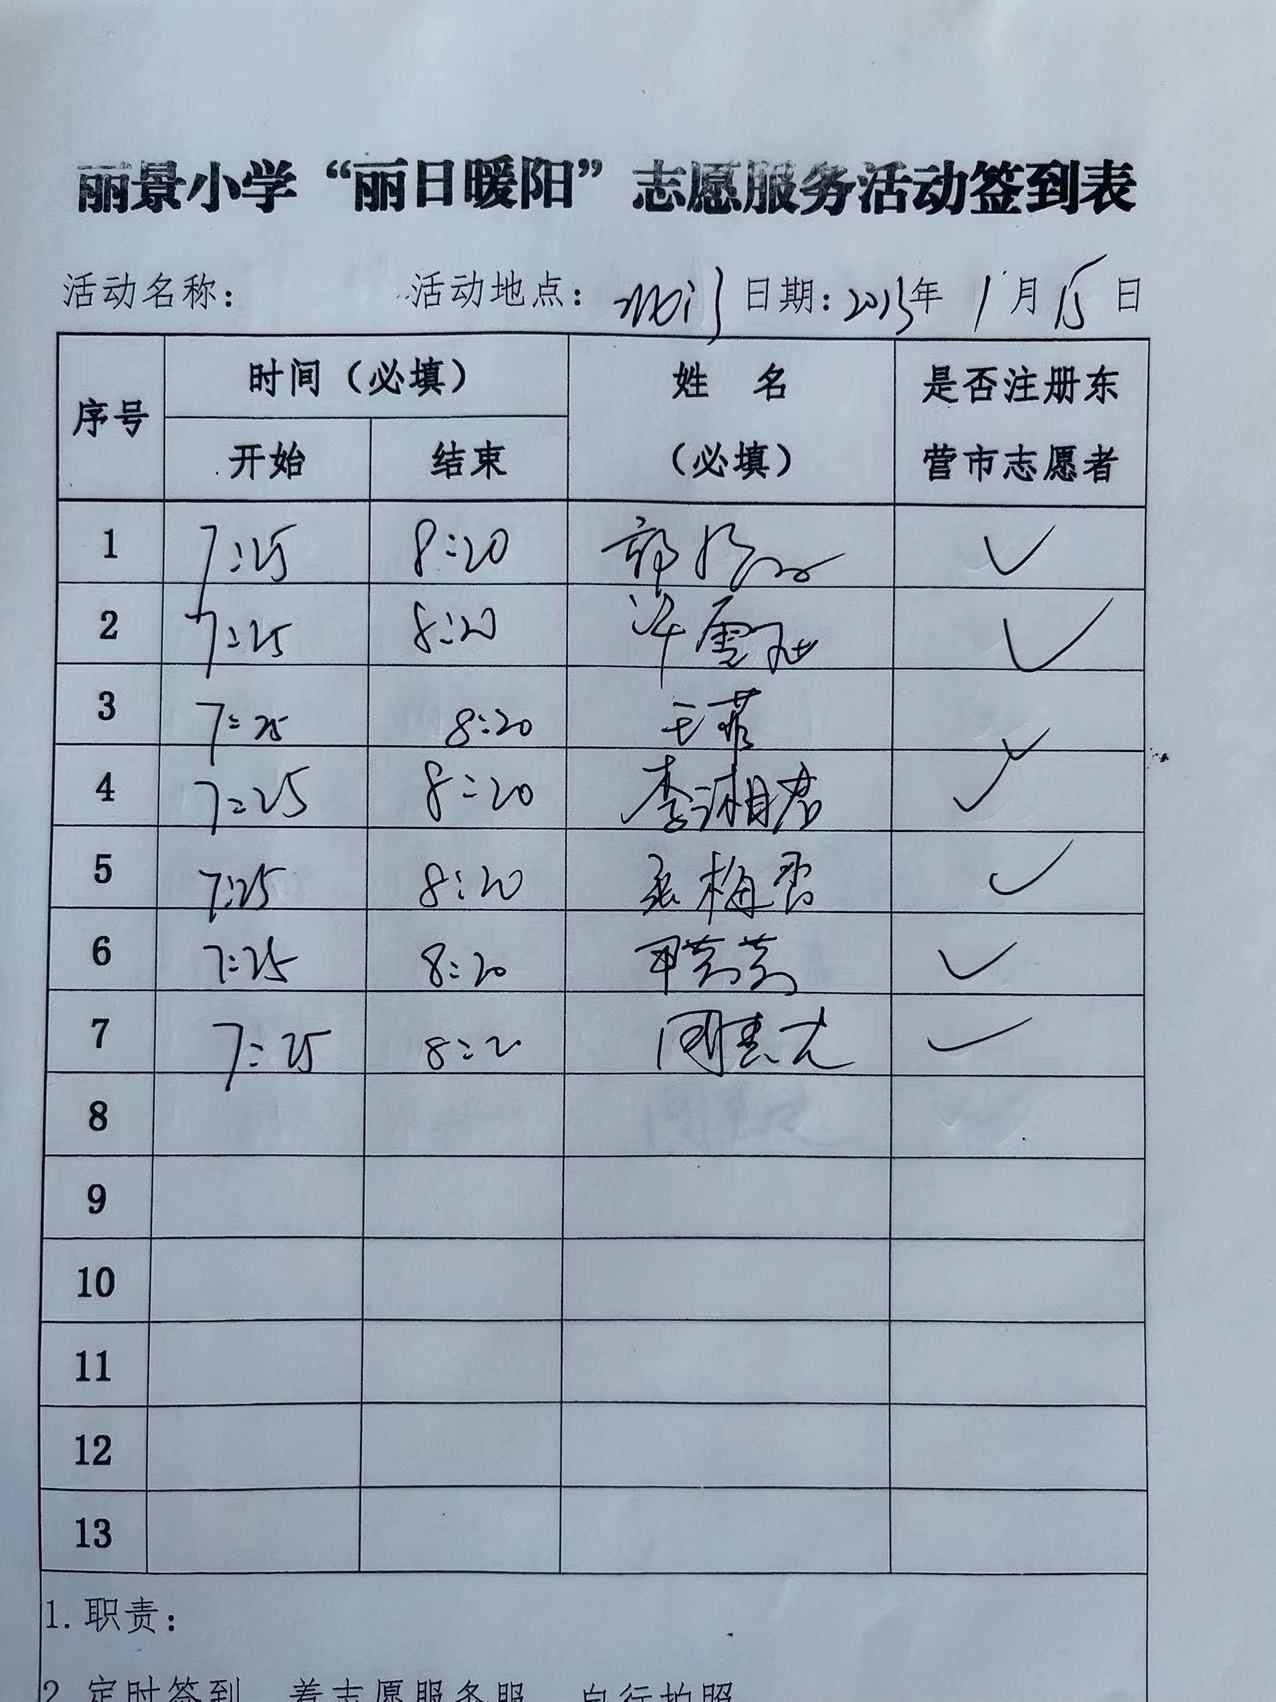 丽景小学“丽日暖阳”志愿服务活动签到表
活动名称： 活动地点： 日期：2023年 1月15日
序号 时间（必填） 姓 名（必填） 是否注册东营市志愿者
开始 结束
1 7:25 8:20 郭
2 7:25 8:20 许雪
3 7:25 8:20 王菲
4 7:25 8:20 李湘君
5 7:25 8:20 张梅香
6 7:25 8:20
7 7:25 8:20 周
8
9
10
11
12
13
1. 职责：
2. 定时签到，着志愿服务服，自行拍照